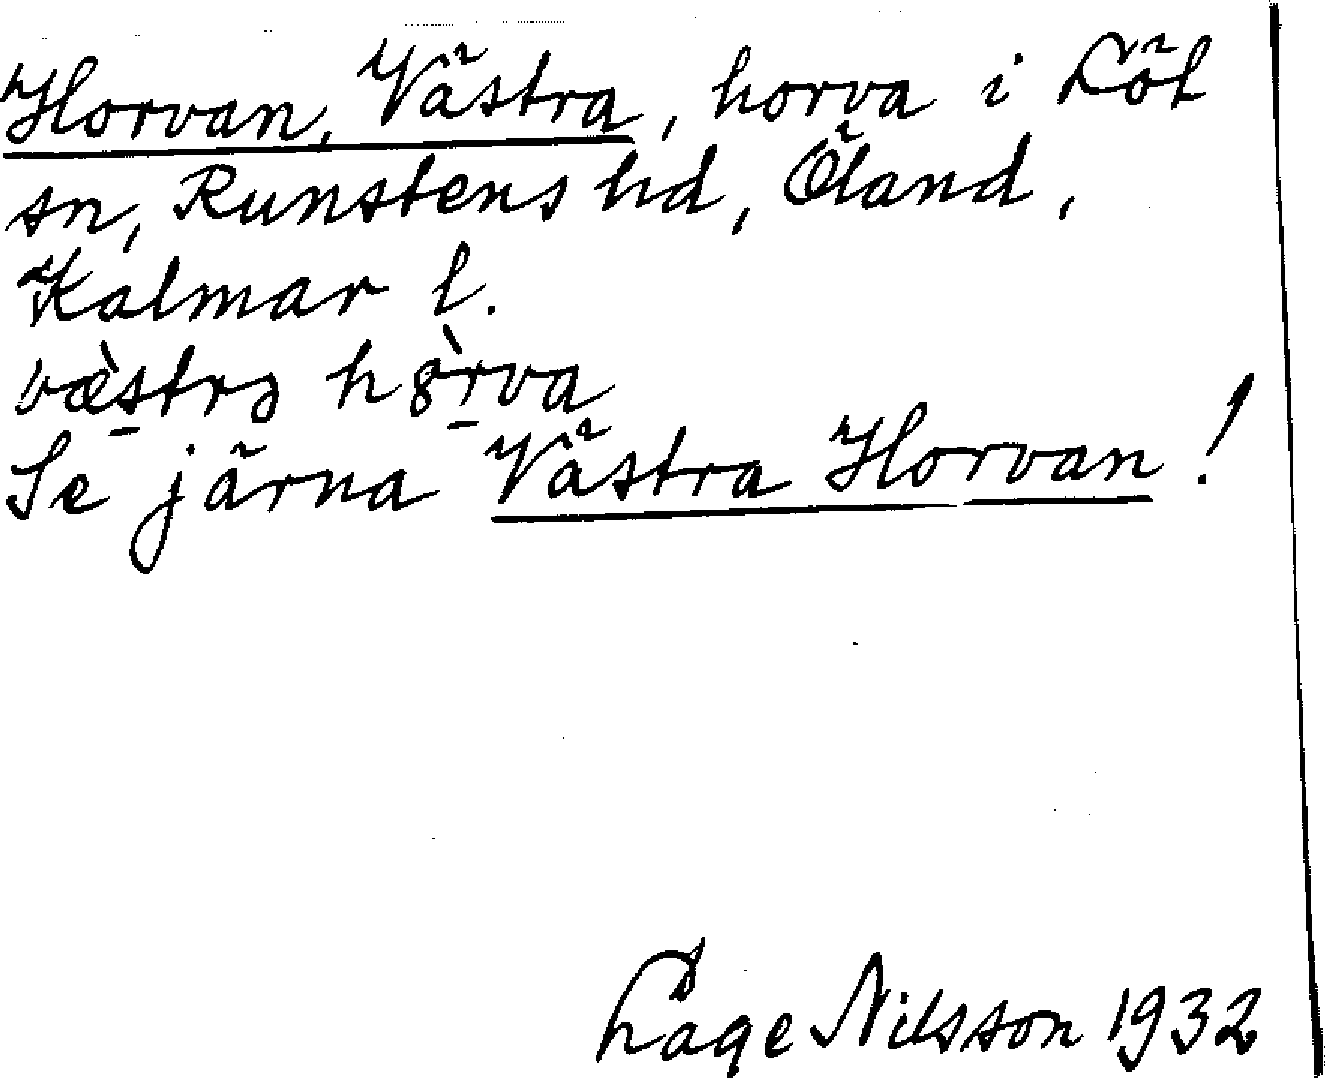 Horvan, Västra, horva i Löt
sn, Runstens hd, Öland,
Kalmar l.
væ̀strɔ h8̀rva
Se järna Västra Horvan!
Låge Nilsson 1932